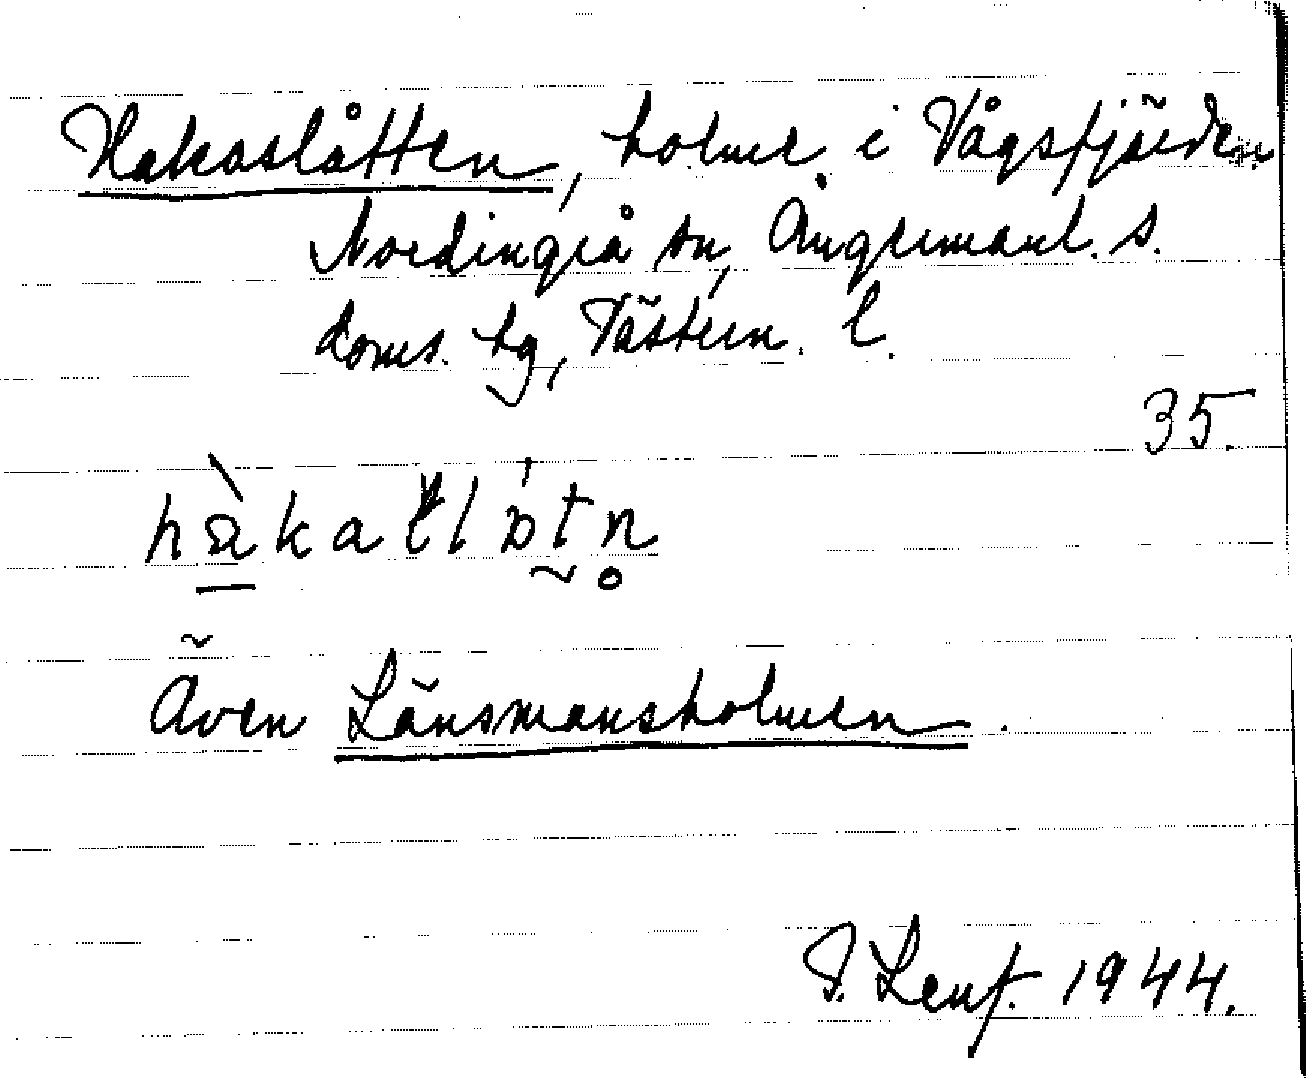 Hakaslåtten, holme i Vågsfjärden
Nordingrå sn, Ångermanl. s.
doms. hg, Västern. l.
35.
Även Länsmansholmen.
1944.